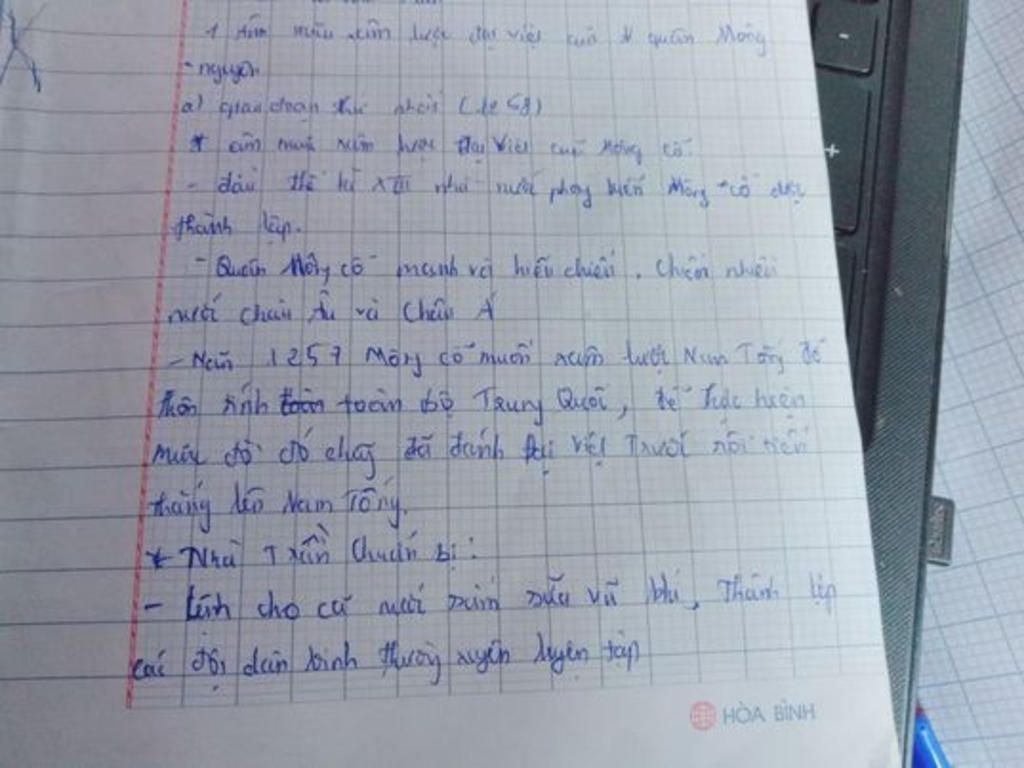 1 Âm mưu xâm lược đại việt của quân Mông
- nguyên
a) giai đoạn thứ nhất (1258)
* âm mưu xâm lược Đại Việt của Mông cổ
- đầu thế kỉ XIII nhà nước phong kiến Mông-cổ được
thành lập.
- Quân Mông cổ mạnh và hiếu chiến. Chiếm nhiều
nước châu Âu và Châu Á
- Năm 1257 Mông cổ muốn xâm lược Nam Tống để
toàn bộ Trung Quốc, để thực hiện
mưu đồ đó chúng đã đánh Đại việt Trước rồi tiến
thẳng lên Nam Tống.
* Nhà Trần Chuẩn bị:
- Lệnh cho cả nước sắm sửa vũ khí, Thành lập
các đội dân binh thường xuyên luyện tập
HÒA BÌNH